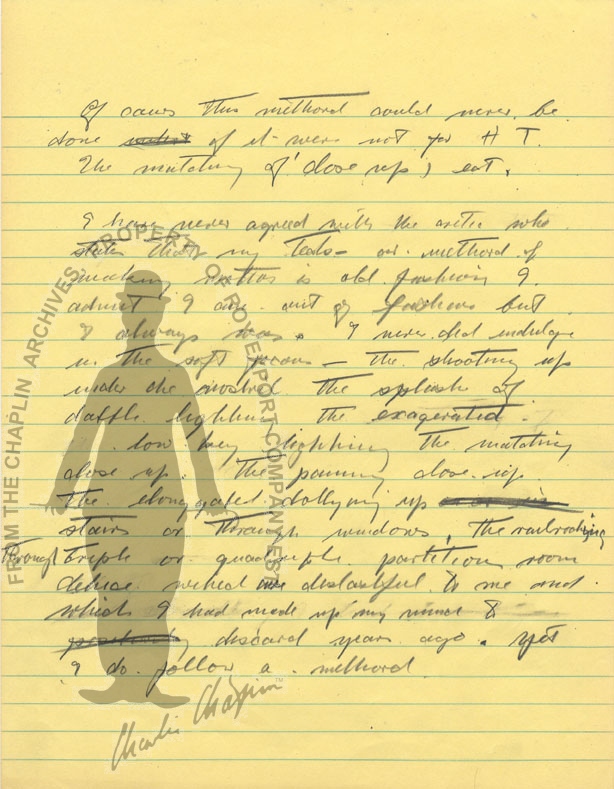 Of caurs this methord could never be
done of it were not for H T.
The matching of close ups, ect.
I have never agreed with the critic who
states that my tecks or methord of
making is old fashion I
admit I am out of fashion but
I always was. I never did indulge
in the soft focus — the shooting up
under the nostrel the splash of
daffle lighting the exagerated
low key lighting the matching
close up. The panning close up
The elonggated dollying up
stairs or through windows, the railroading
through triple or quadruple partition room
which are distastful to me and
which I had made up my mind to
discard years ago. yet
I do follow a methord
FROM THE CHAPLIN ARCHIVES, PROPERTY OF ROY EXPORT COMPANY EST
Charlie Chaplin
TM